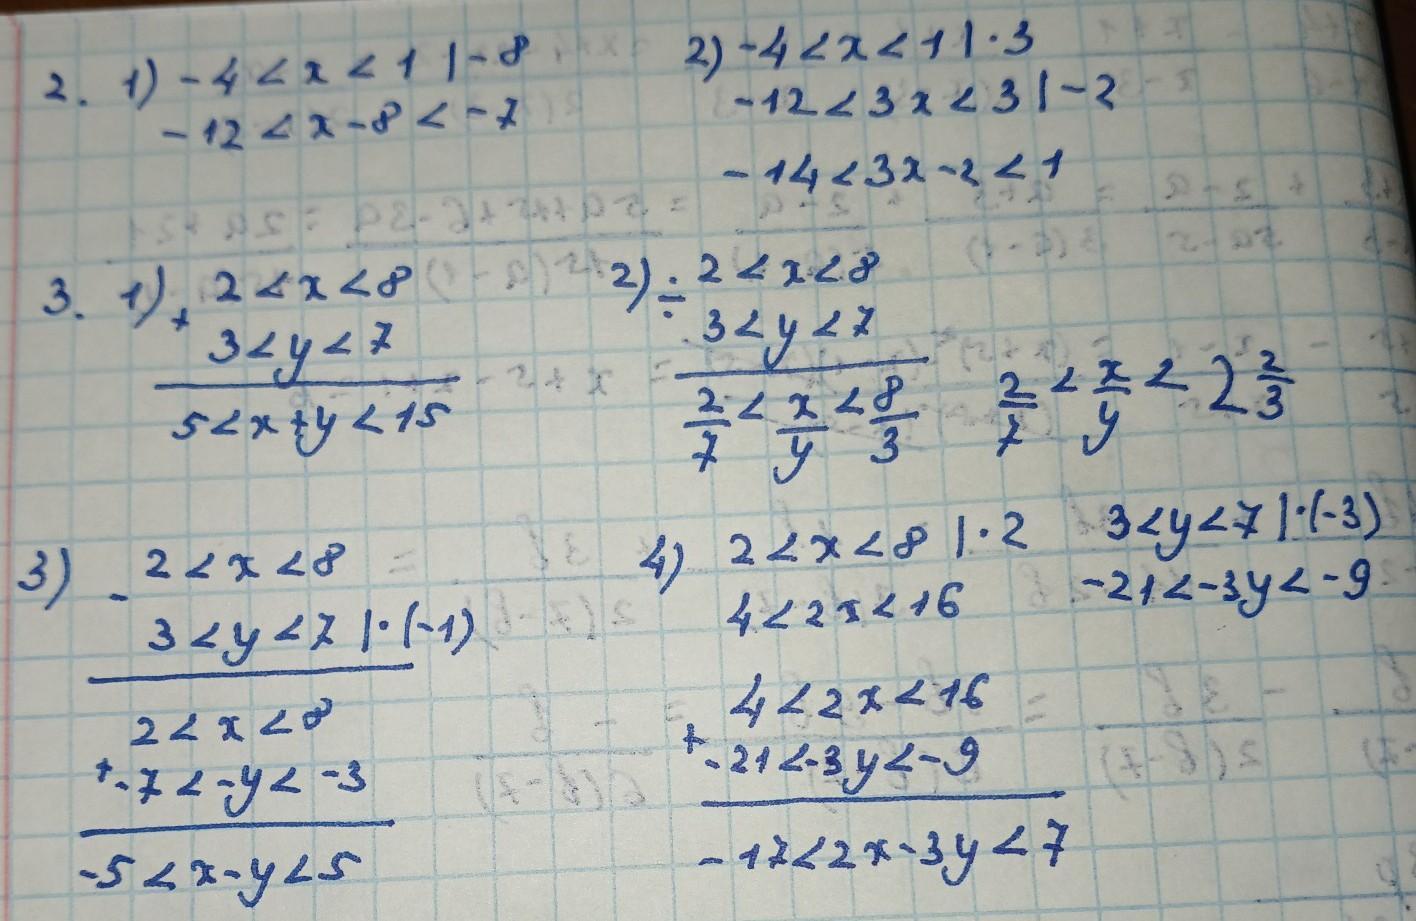 2. 1) -4 < x < 1 | -8
-12 < x - 8 < -7
2) -4 < x < 1 | · 3
-12 < 3x < 3 | -2
-14 < 3x - 2 < 1
3. 1) + 2 < x < 8
3 < y < 7
5 < x + y < 15
2) ÷ 2 < x < 8
3 < y < 7
2/7 < x/y < 8/3
2/7 < x/y < 2 2/3
3) - 2 < x < 8
3 < y < 7 | · (-1)
2 < x < 8
+ -7 < -y < -3
-5 < x - y < 5
4) 2 < x < 8 | · 2
4 < 2x < 16
3 < y < 7 | · (-3)
-21 < -3y < -9
4 < 2x < 16
+ -21 < -3y < -9
-17 < 2x - 3y < 7